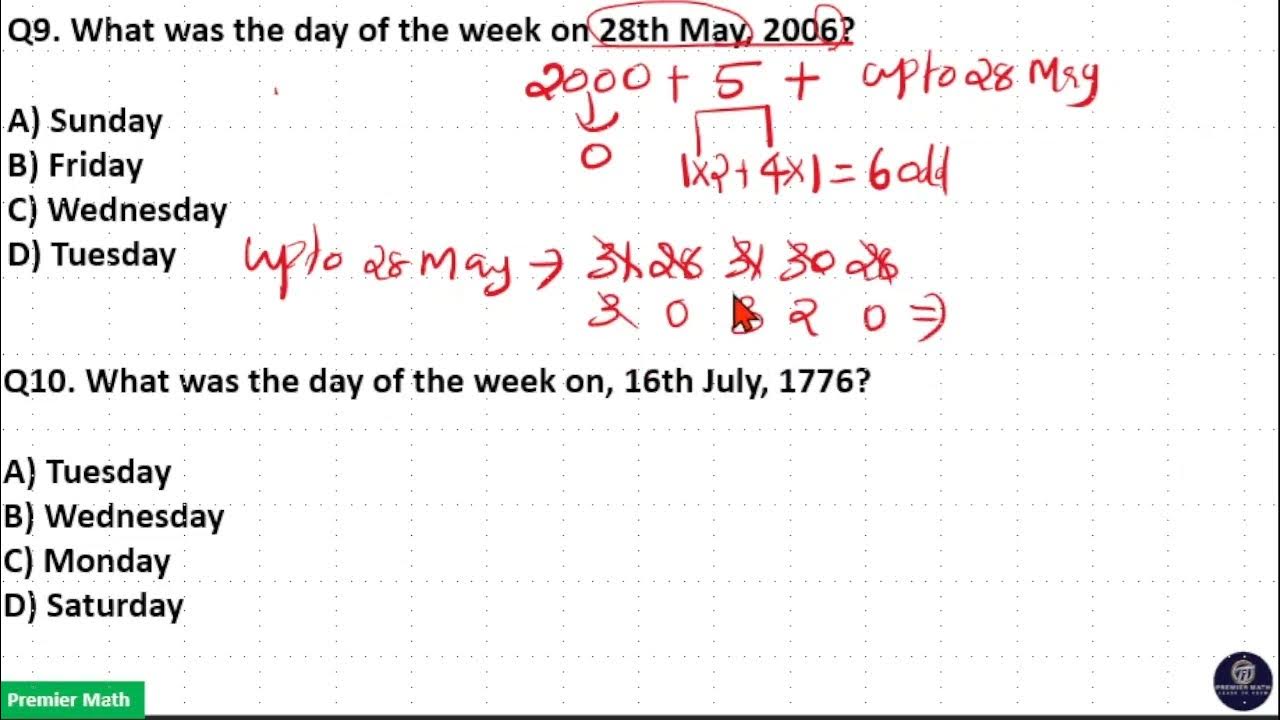 Q9. What was the day of the week on 28th May, 2006?
2000 + 5 + upto 28 May
0 1x2+4x1=6 odd
A) Sunday
B) Friday
C) Wednesday
D) Tuesday
upto 28 May → 31 28 31 30 28
3 0 3 2 0 ⇒
Q10. What was the day of the week on, 16th July, 1776?
A) Tuesday
B) Wednesday
C) Monday
D) Saturday
Premier Math
PREMIER MATH